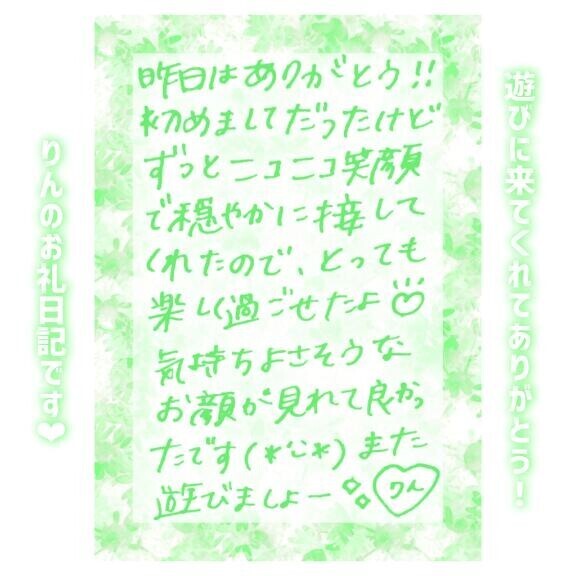 遊びに来てくれてありがとう!
昨日はありがとう!!
初めましてだったけど
ずっとニコニコ笑顔
で穏やかに接して
くれたので、とっても
楽しく過ごせたよ♡
気持ちよさそうな
お顔が見れて良かっ
たです(*´ㅂ`*)また
遊びましょー
りん
りんのお礼日記です❤